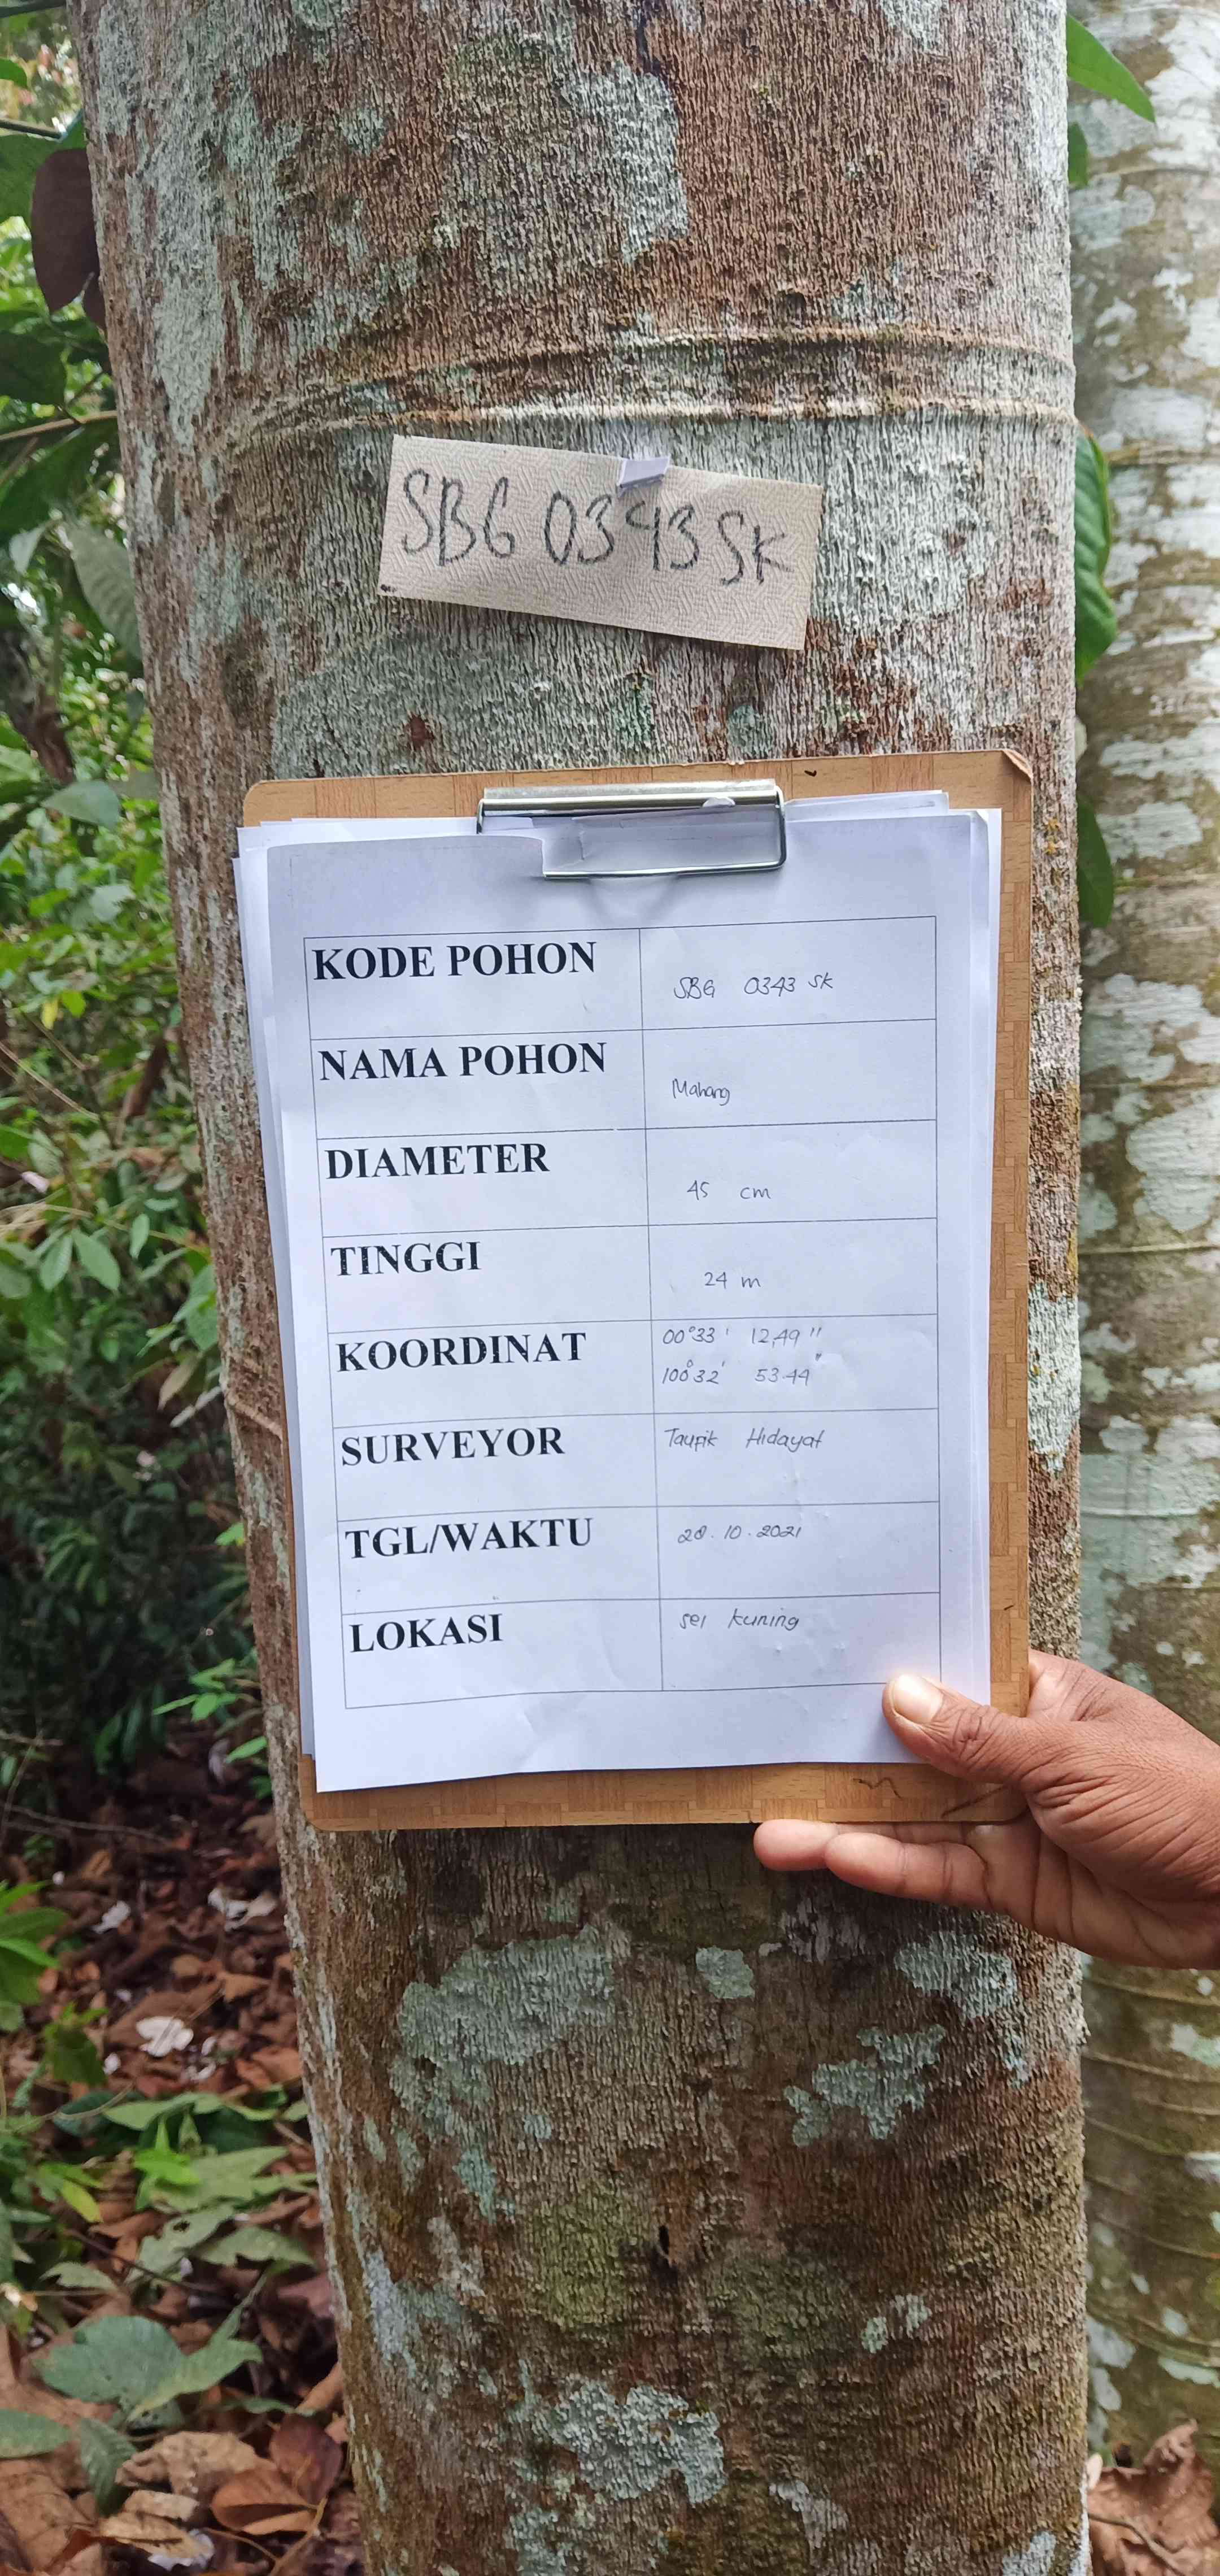 SBG 0343 SK
KODE POHON SBG 0343 SK
NAMA POHON Mahang
DIAMETER 45 cm
TINGGI 24 m
KOORDINAT 00°33' 12,49"
100°32' 53.44"
SURVEYOR Taupik Hidayat
TGL/WAKTU 28.10.2021
LOKASI sei kuning